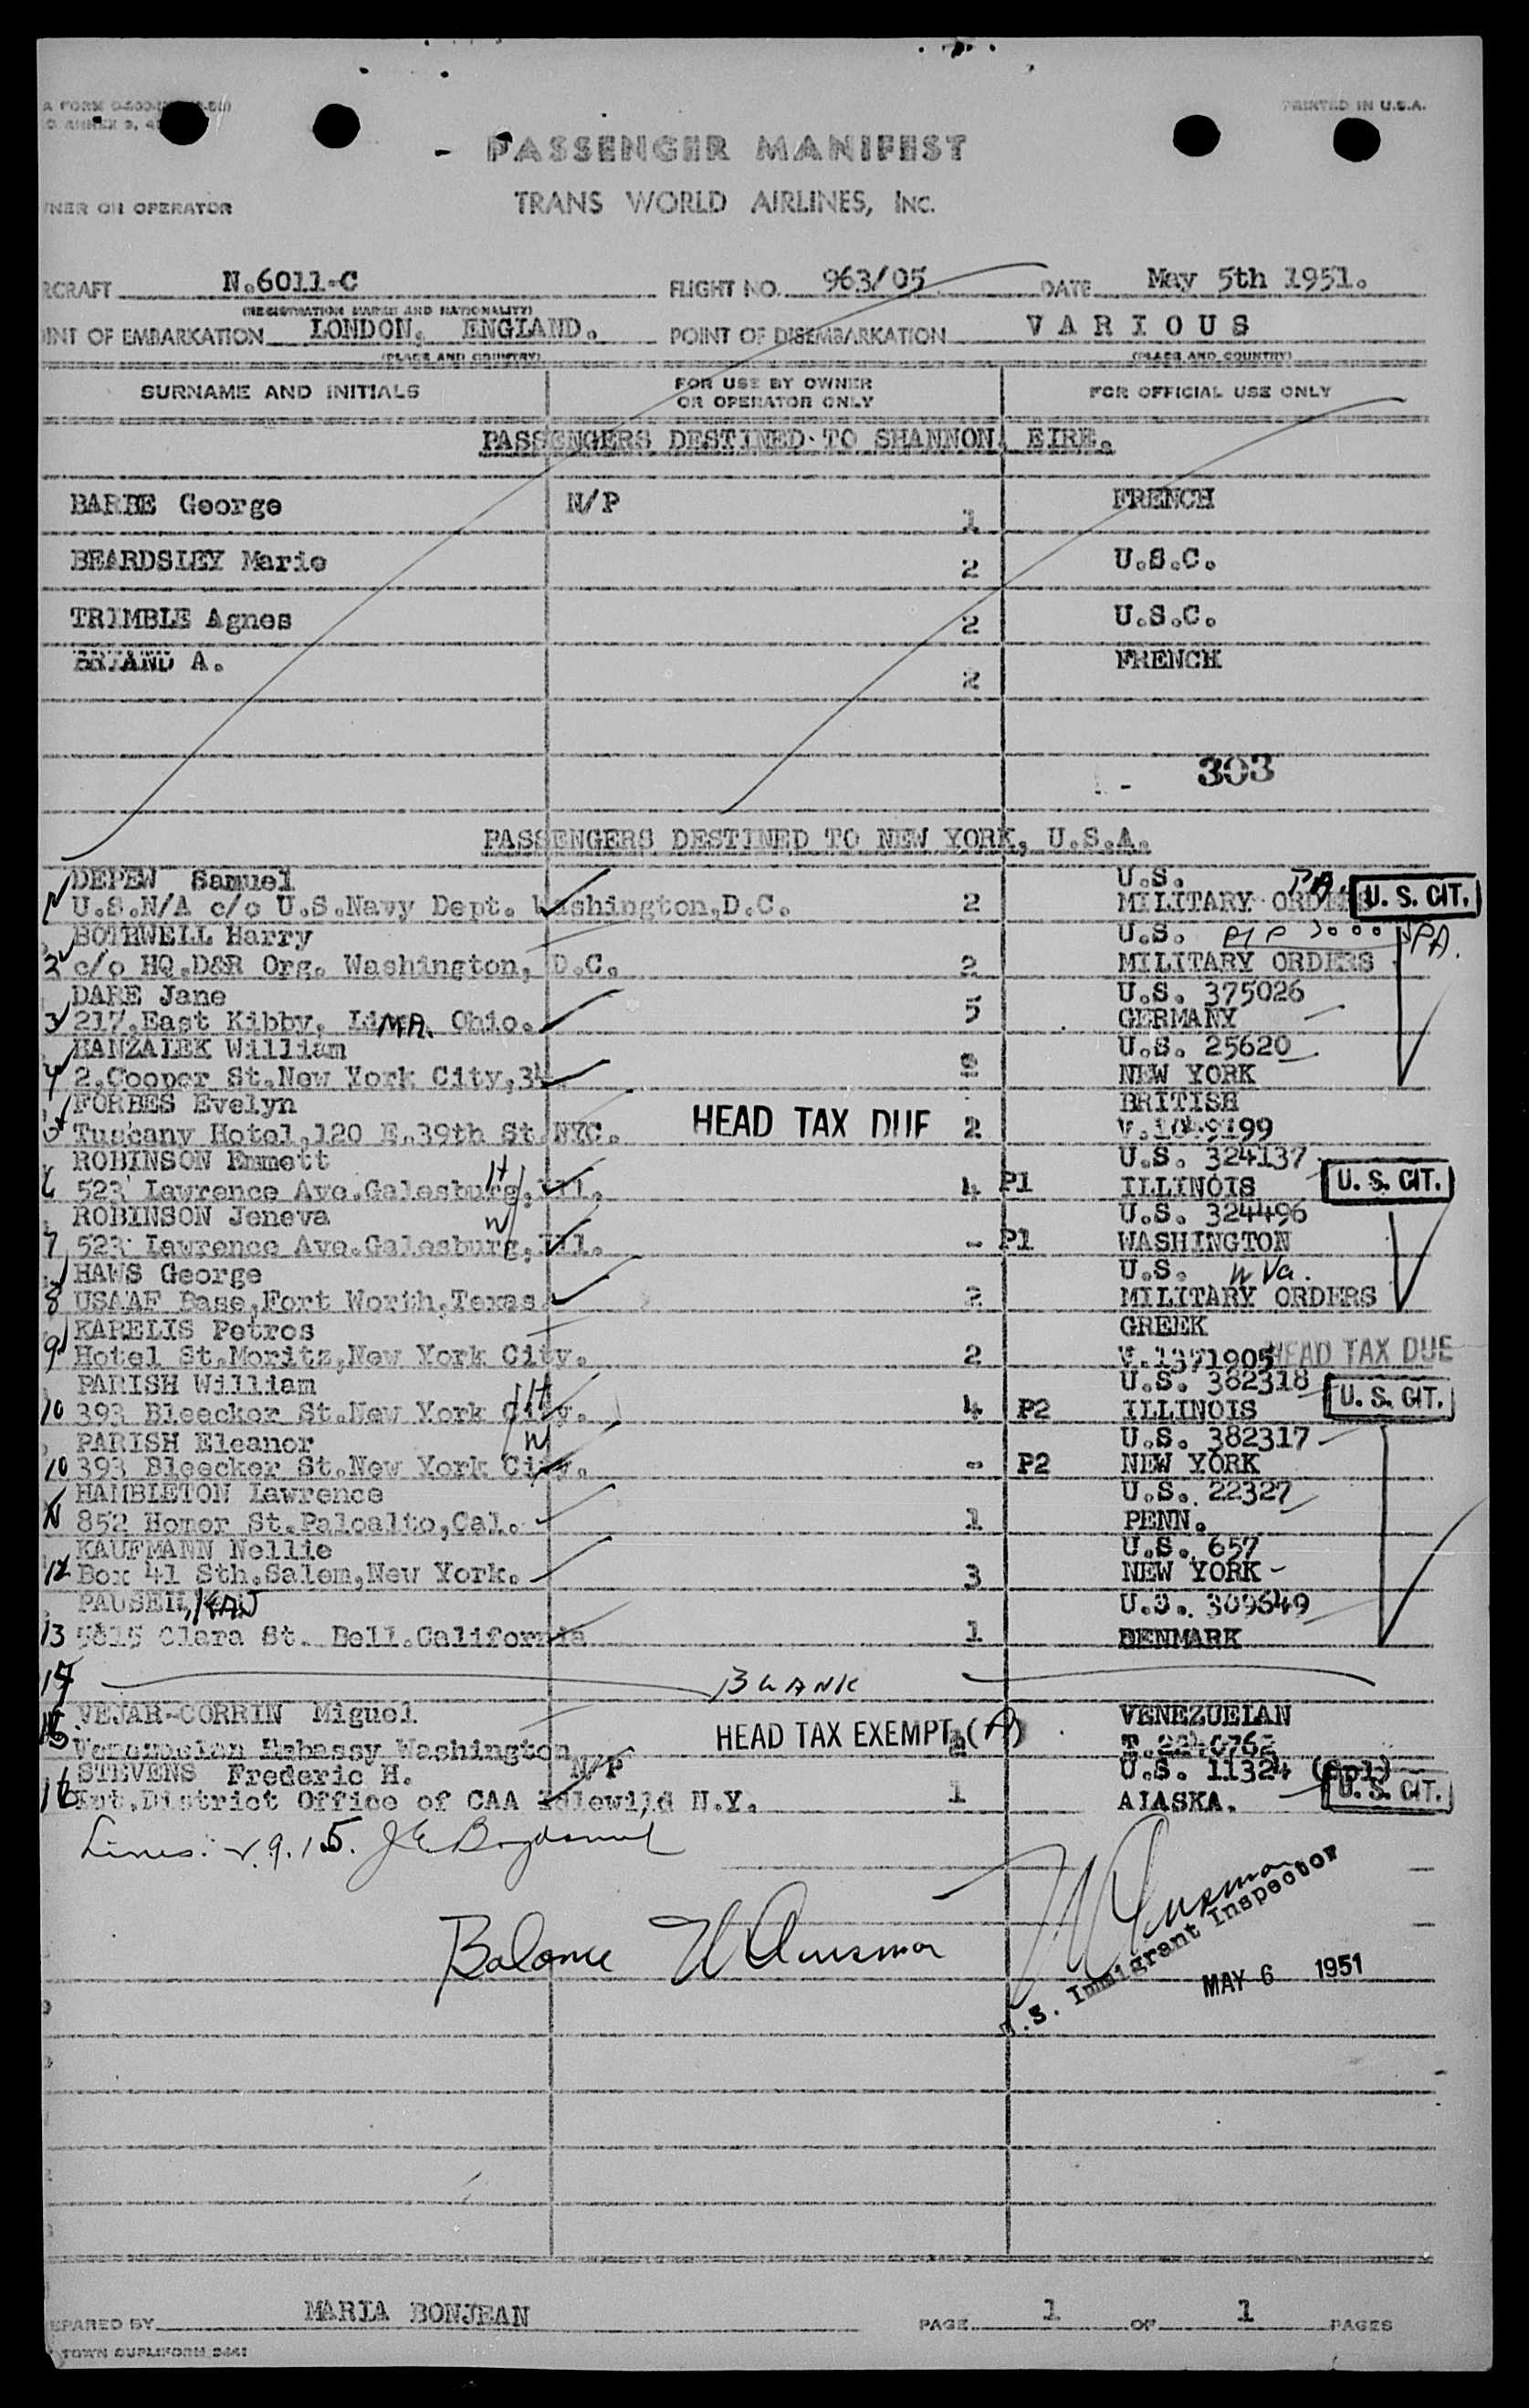 PRINTED IN U.S.A.
PASSENGER MANIFEST
TRANS WORLD AIRLINES, INC.
NER OR OPERATOR
RCRAFT N.6011-C FLIGHT NO. 963/05 DATE May 5th 1951.
(REGISTRATION MARKS AND NATIONALITY)
INT OF EMBARKATION LONDON, ENGLAND. POINT OF DISEMBARKATION VARIOUS
(PLACE AND COUNTRY) (PLACE AND COUNTRY)
SURNAME AND INITIALS FOR USE BY OWNER OR OPERATOR ONLY FOR OFFICIAL USE ONLY
PASSENGERS DESTINED TO SHANNON, EIRE.
BARBE George N/P 1 FRENCH
BEARDSLEY Marie 2 U.S.C.
TRIMBLE Agnes 2 U.S.C.
BRIAND A. 2 FRENCH
303
PASSENGERS DESTINED TO NEW YORK, U.S.A.
DEPEW Samuel U.S.
1 U.S.N/A c/o U.S.Navy Dept. Washington,D.C. 2 MILITARY ORDERS PA. U. S. CIT.
BOTHWELL Harry U.S. PA.
2 c/o HQ.D&R Org. Washington, D.C. 2 MILITARY ORDERS
DARE Jane U.S. 375026
3 217.East Kibby, LiMA. Ohio. 5 GERMANY
HANZALEK William U.S. 25620
4 2,Cooper St.New York City,34. NEW YORK
FORBES Evelyn BRITISH
5 Tuscany Hotel,120 E.39th St.NYC. HEAD TAX DUE 2 V.1049199
ROBINSON Emmett U.S. 324137
6 523 Lawrence Ave.Galesburg,Ill. H 4 P1 ILLINOIS U. S. CIT.
ROBINSON Jeneva U.S. 324496
7 523 Lawrence Ave.Galesburg,Ill. W - P1 WASHINGTON
HAWS George U.S. W Va.
8 USAAF Base,Fort Worth,Texas. 2 MILITARY ORDERS
KARELIS Petros GREEK
9 Hotel St.Moritz,New York City. 2 V.1371905 HEAD TAX DUE
PARISH William U.S. 382318
10 393 Bleecker St.New York City. H 4 P2 ILLINOIS U. S. CIT.
PARISH Eleanor U.S. 382317
10 393 Bleecker St.New York City. W - P2 NEW YORK
HAMBLETON Lawrence U.S. 22327
11 852 Homer St.Paloalto,Cal. 1 PENN.
KAUFMANN Nellie U.S. 657
12 Box 41 Sth.Salem,New York. 3 NEW YORK
PAUSEH, KAJ U.S. 309649
13 5815 Clara St. Bell.California 1 DENMARK
14 BLANK
VEJAR-CORRIN Miguel VENEZUELAN
15 Venezuelan Embassy Washington HEAD TAX EXEMPT (A) 2 T.2240762
STEVENS Frederic H. N/P U.S. 11324 (Spl)
16 Rpt.District Office of CAA Idlewild N.Y. 1 ALASKA. U. S. CIT.
Lines: 9. 15.
Balance
U.S. Immigrant Inspector
MAY 6 1951
EPARED BY MARIA BONJEAN PAGE 1 OF 1 PAGES